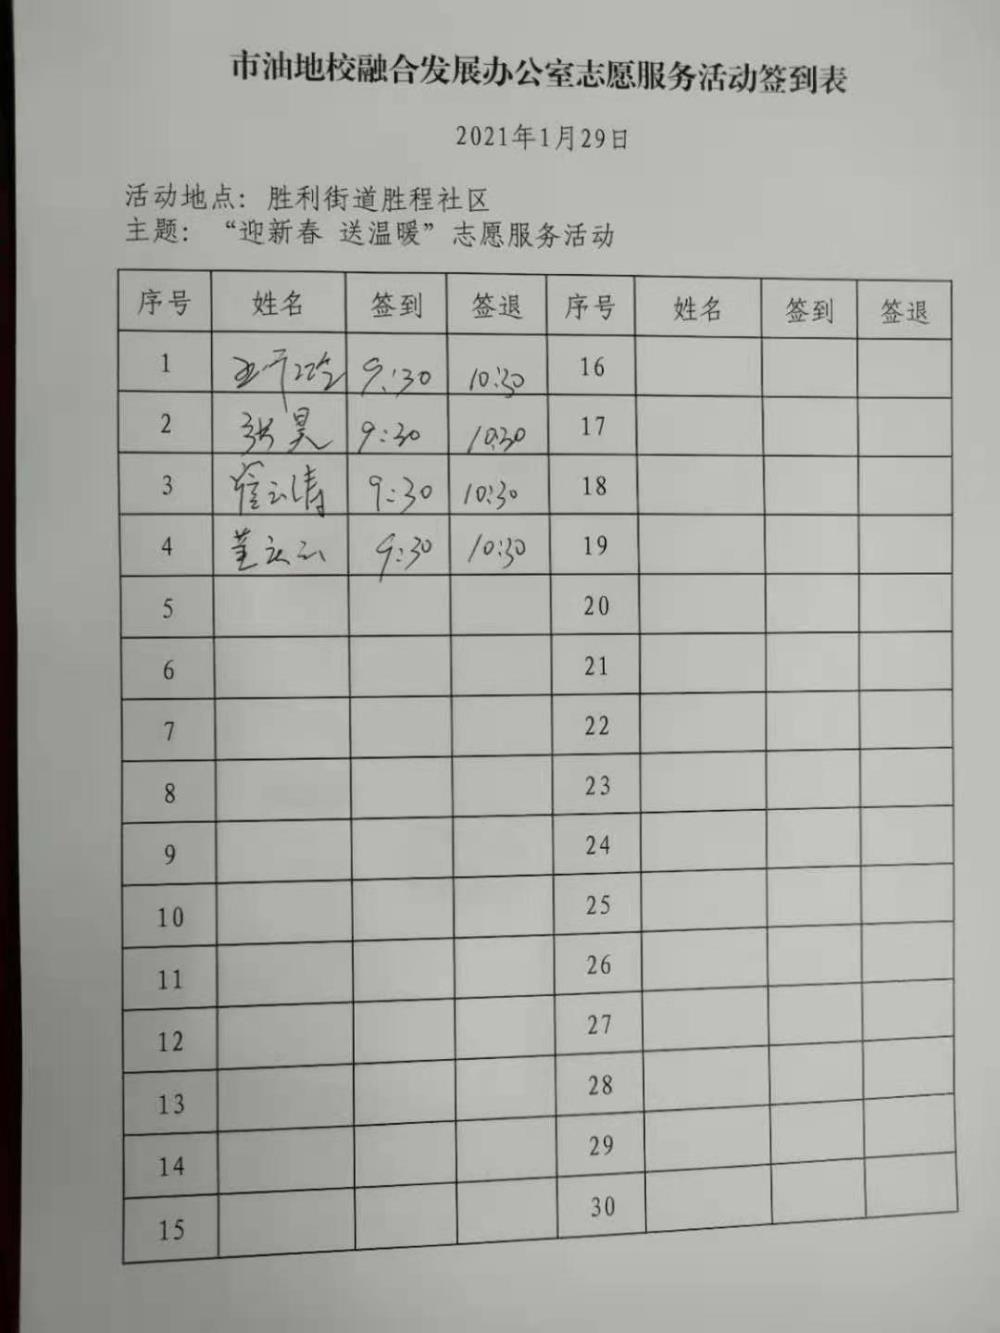 市油地校融合发展办公室志愿服务活动签到表
2021年1月29日
活动地点：胜利街道胜程社区
主题：“迎新春 送温暖”志愿服务活动
序号 姓名 签到 签退 序号 姓名 签到 签退
1 9:30 10:30 16
2 张昊 9:30 10:30 17
3 崔云涛 9:30 10:30 18
4 董 9:30 10:30 19
5 20
6 21
7 22
8 23
9 24
10 25
11 26
12 27
13 28
14 29
15 30